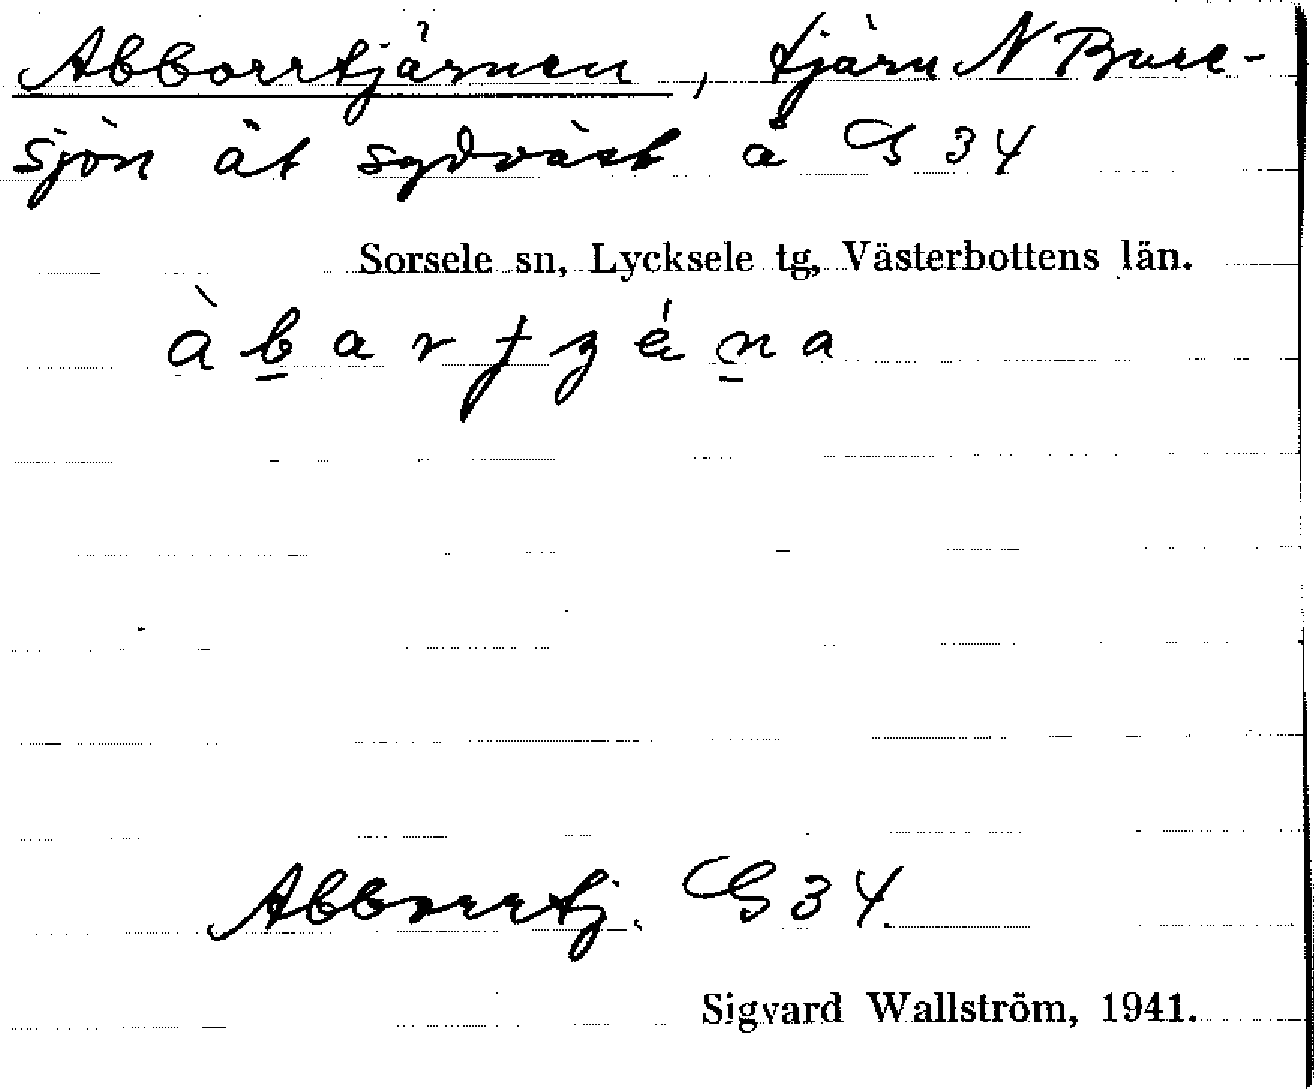 Abborrtjärnen, tjärn N Buse-
sjön åt sydväst å G 34
Sorsele sn, Lycksele tg, Västerbottens län.
Abborrtj. G 34
Sigvard Wallström, 1941.